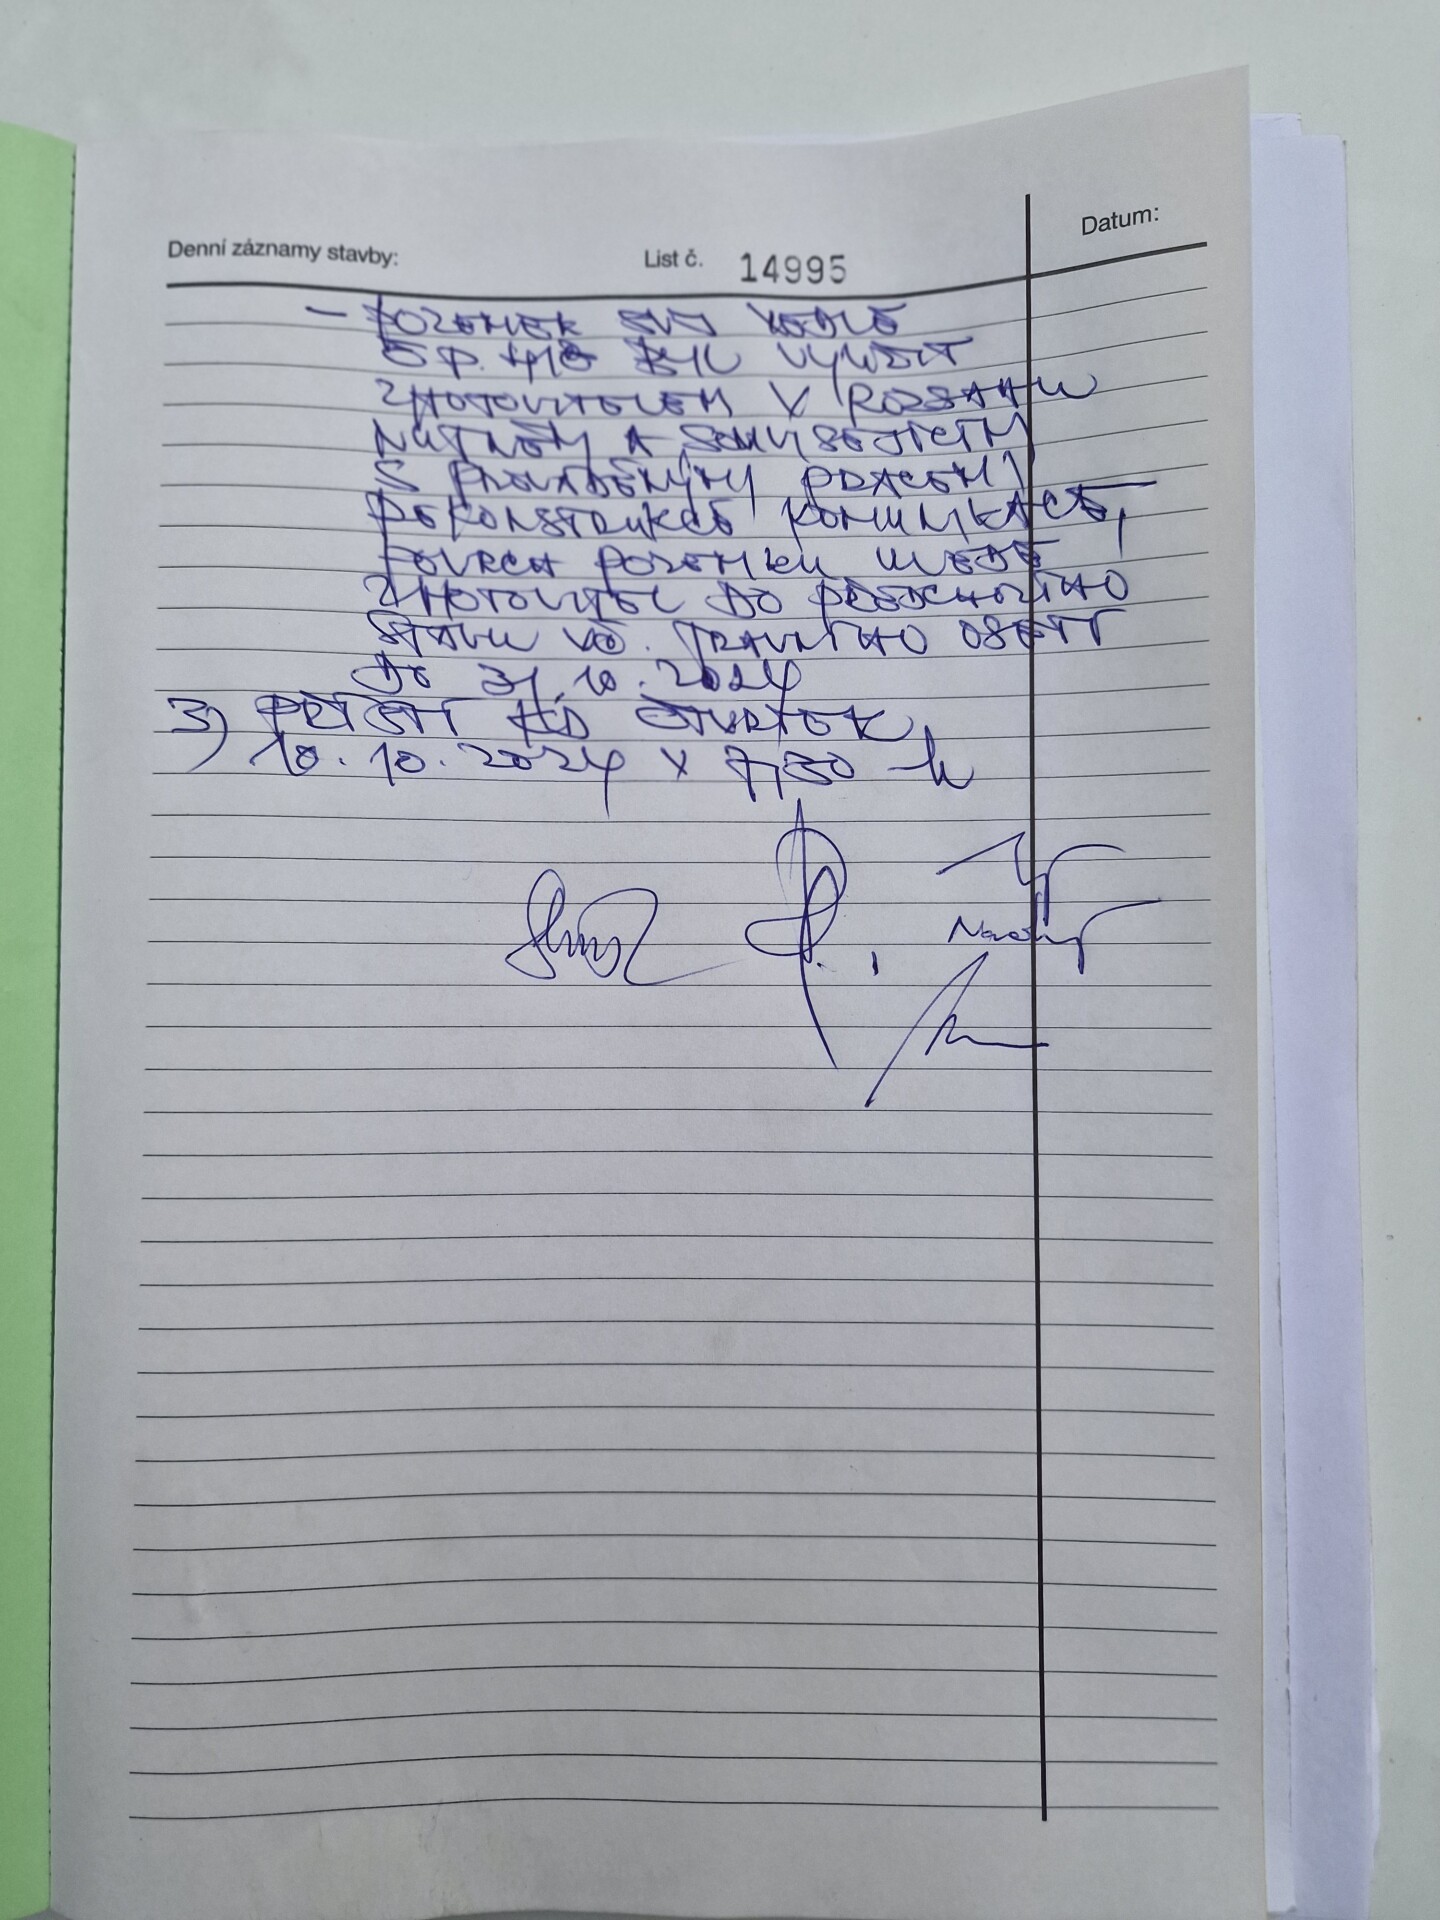 Denní záznamy stavby: List č. 14995 Datum:
- POZEMEK SVJ VEDLE
Č.P. 418 BYL VYUŽIT
ZHOTOVITELEM V ROZSAHU
NUTNÉM A SOUVISEJÍCÍM
S PROVÁDĚNÝMI PRACEMI
REKONSTRUKCE KOMUNIKACE,
POVRCH POZEMKU UVEDE
ZHOTOVITEL DO PŘEDCHOZÍHO
STAVU VČ. TRAVNÍHO OSETÍ
DO 31.10.2024
3) PŘÍŠTÍ KD ČTVRTEK
10.10.2024 V 7,30 h